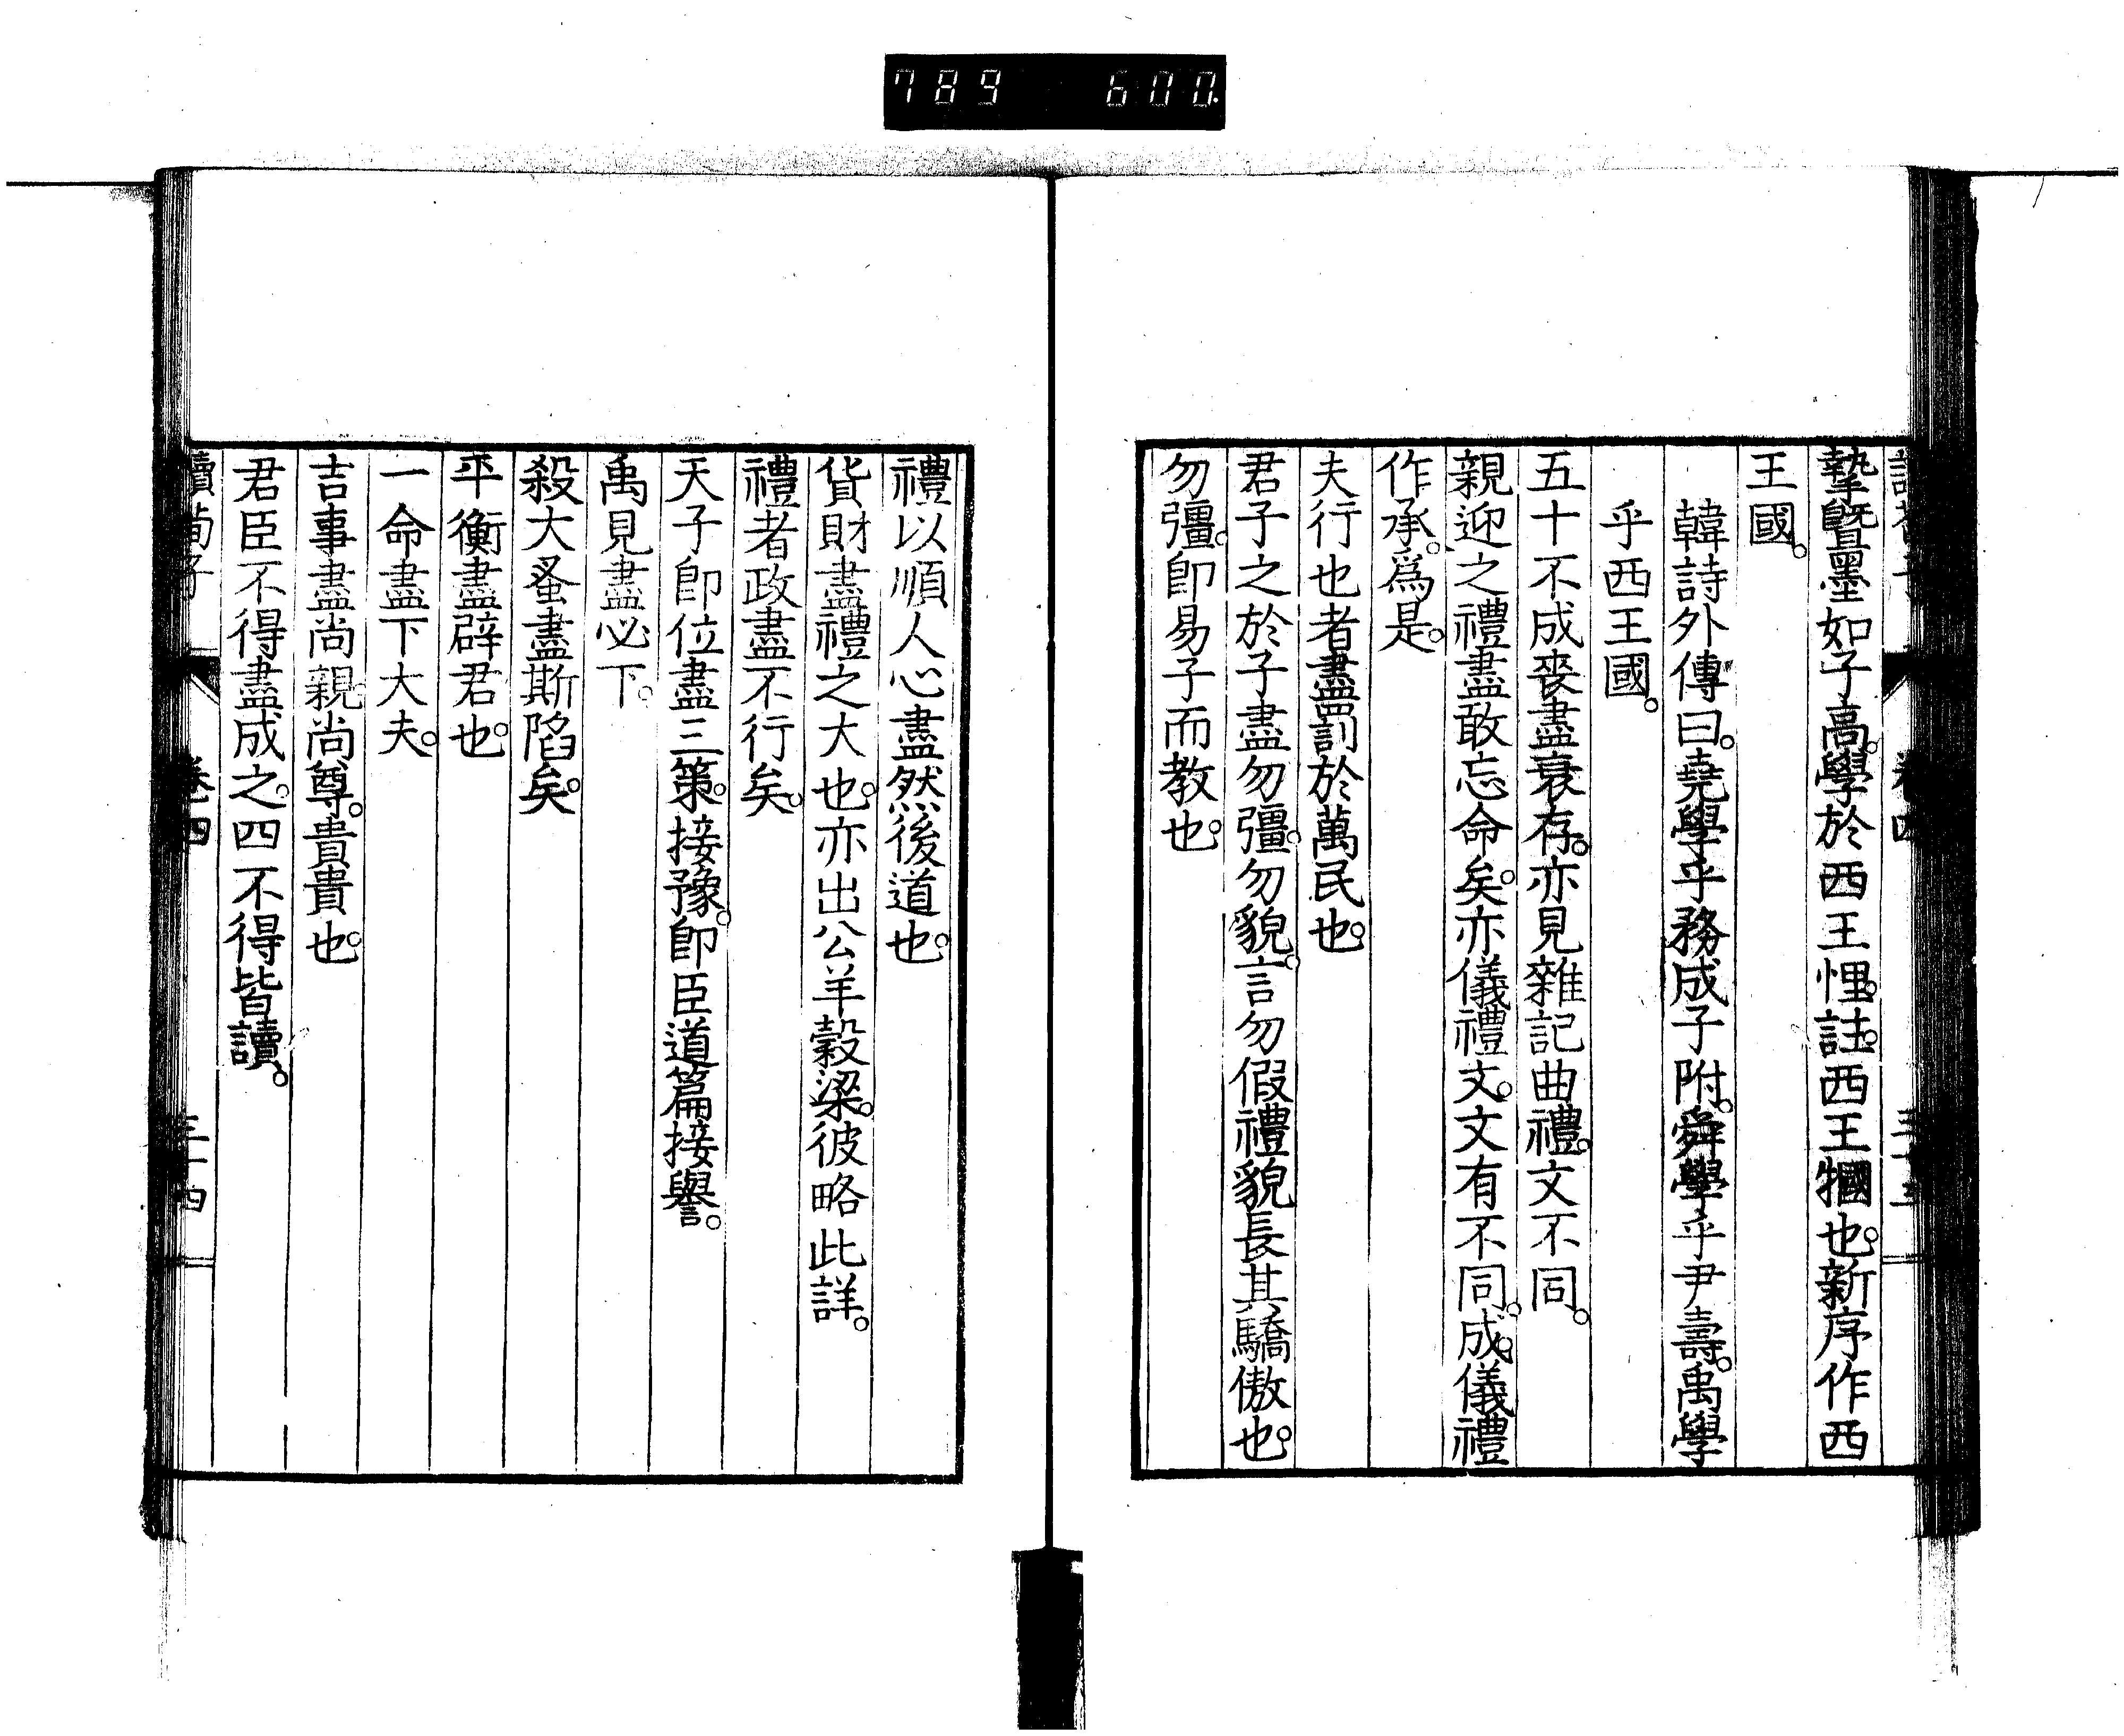 789 600.
墊曁墨如子高。學於西王悝。註。西王㹙也。新序作西
王國。
韓詩外傳曰。堯學乎務成子附。舜學乎尹壽。禹學
乎西王國。
五十不成喪盡衰存。亦見雜記曲禮。文不同。
親迎之禮盡敢忘命矣。亦儀禮文。文有不同。成。儀禮
作承。爲是。
夫行也者盡罰於萬民也。
君子之於子盡勿彊。勿貌。言勿假禮貌長其驕傲也。
勿彊。卽易子而教也。
禮以順人心盡然後道也。
貨財盡禮之大也。亦出公羊穀梁。彼略此詳。
禮者政盡不行矣。
天子卽位盡三策。接豫。卽臣道篇接譽。
禹見盡必下。
殺大蚤盡斯陷矣。
平衡盡辟君也。
一命盡下大夫。
吉事盡尚親。尚尊。貴貴也。
君臣不得盡成之。四不得皆讀。
讀荀子 卷四 三十四